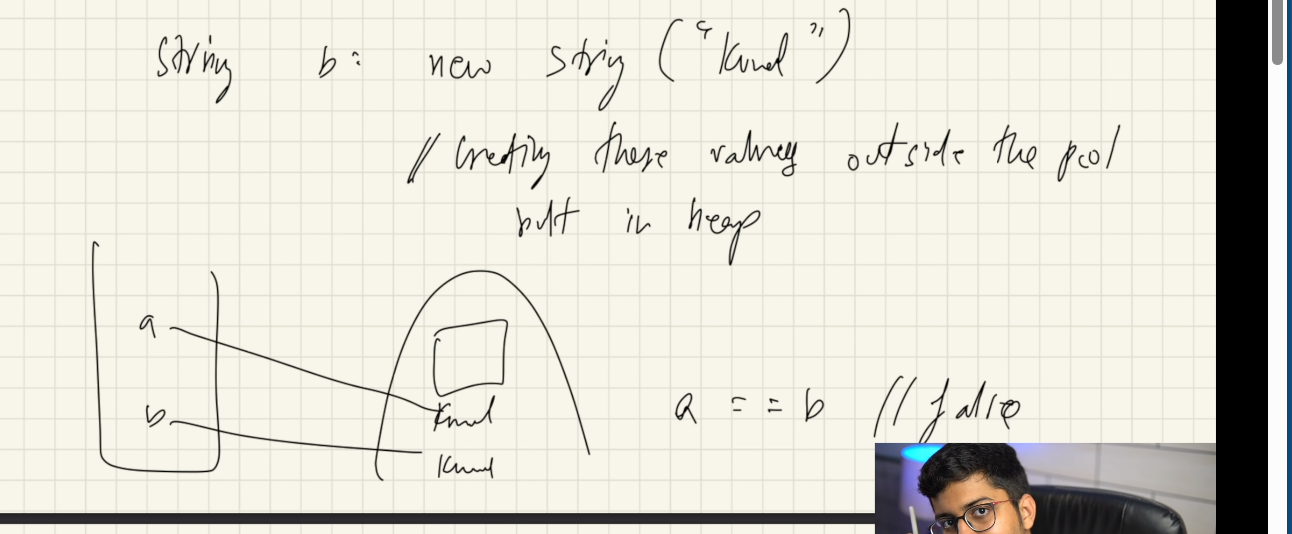 String b = new String ("Kunal")
// Creating these values outside the pool
but in heap
a
b
Kunal
Kunal
a == b // false